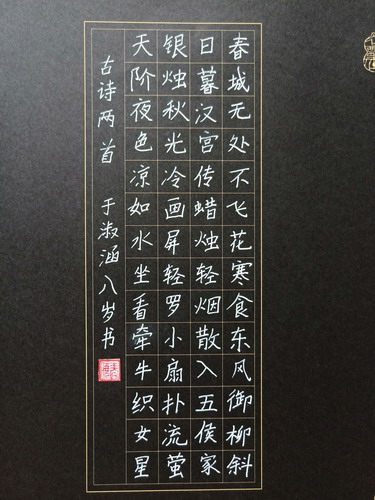 春城无处不飞花寒食东风御柳斜
日暮汉宫传蜡烛轻烟散入五侯家
银烛秋光冷画屏轻罗小扇扑流萤
天阶夜色凉如水坐看牵牛织女星
古诗两首 于淑涵八岁书